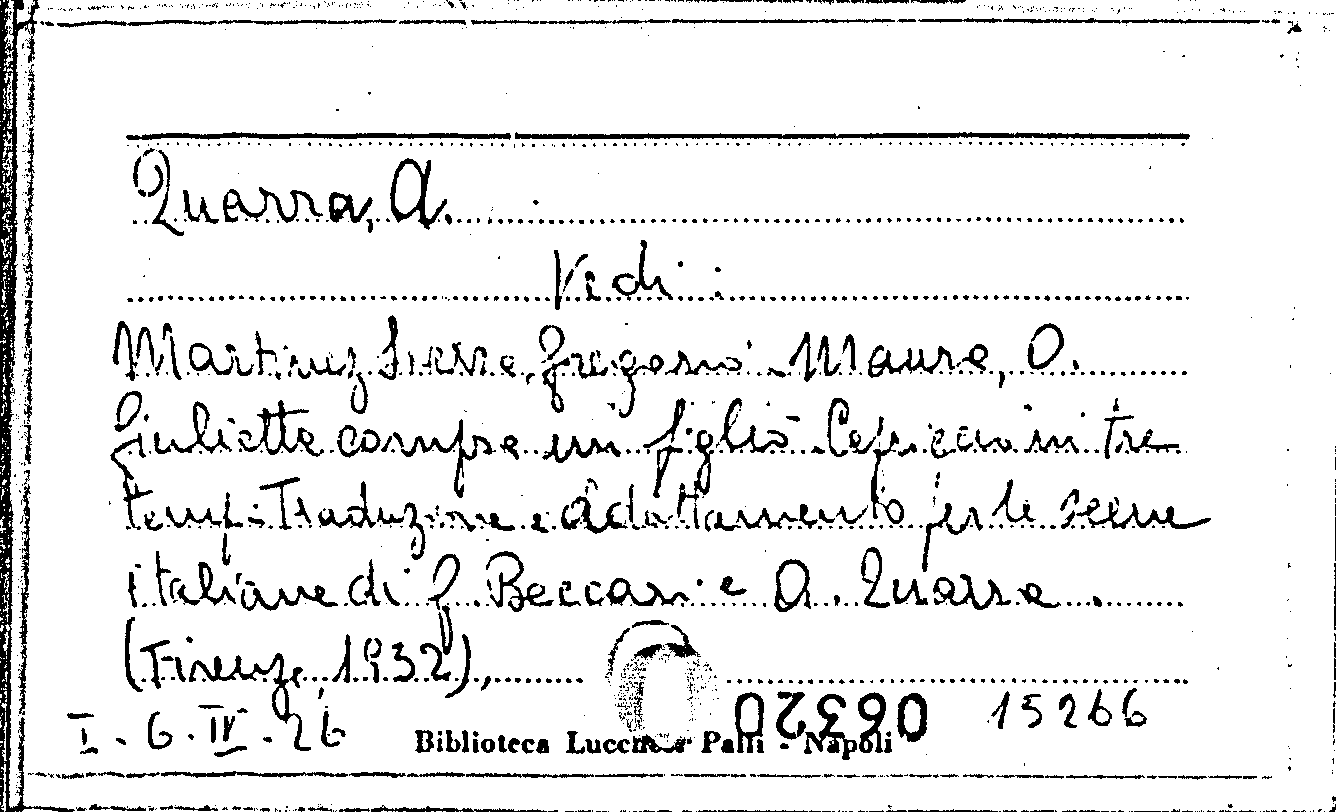 Quarra, A.
Vedi:
Martinez Sierra, Gregorio - Maura, O.
Giulietta compra un figlio. Capriccio in tre
tempi. Traduzione e adattamento per le scene
italiane di G. Beccari e A. Quarra.
(Firenze, 1932),
I. 6. IV. 26 06320 15266
Biblioteca Lucchesi Palli - Napoli